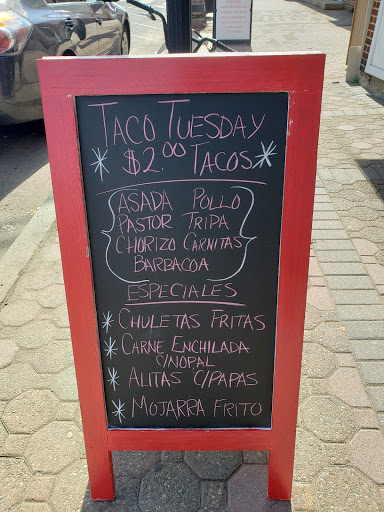 TACO TUESDAY
$2.00 TACOS
ASADA POLLO
PASTOR TRIPA
CHORIZO CARNITAS
BARBACOA
ESPECIALES
* CHULETAS FRITAS
* CARNE ENCHILADA
C/NOPAL
* ALITAS C/PAPAS
* MOJARRA FRITO